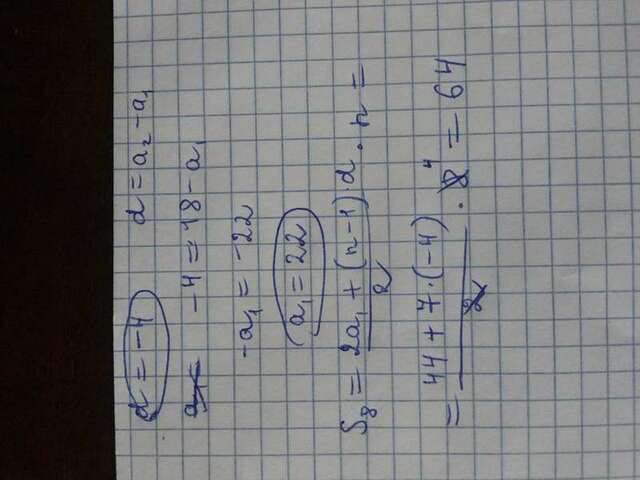 d = -4 d = a₂ - a₁
-4 = 18 - a₁
-a₁ = -22
a₁ = 22
S₈ = (2a₁ + (n-1)·d)/2 · n =
= (44 + 7·(-4))/2 · 8 ⁴ = 64